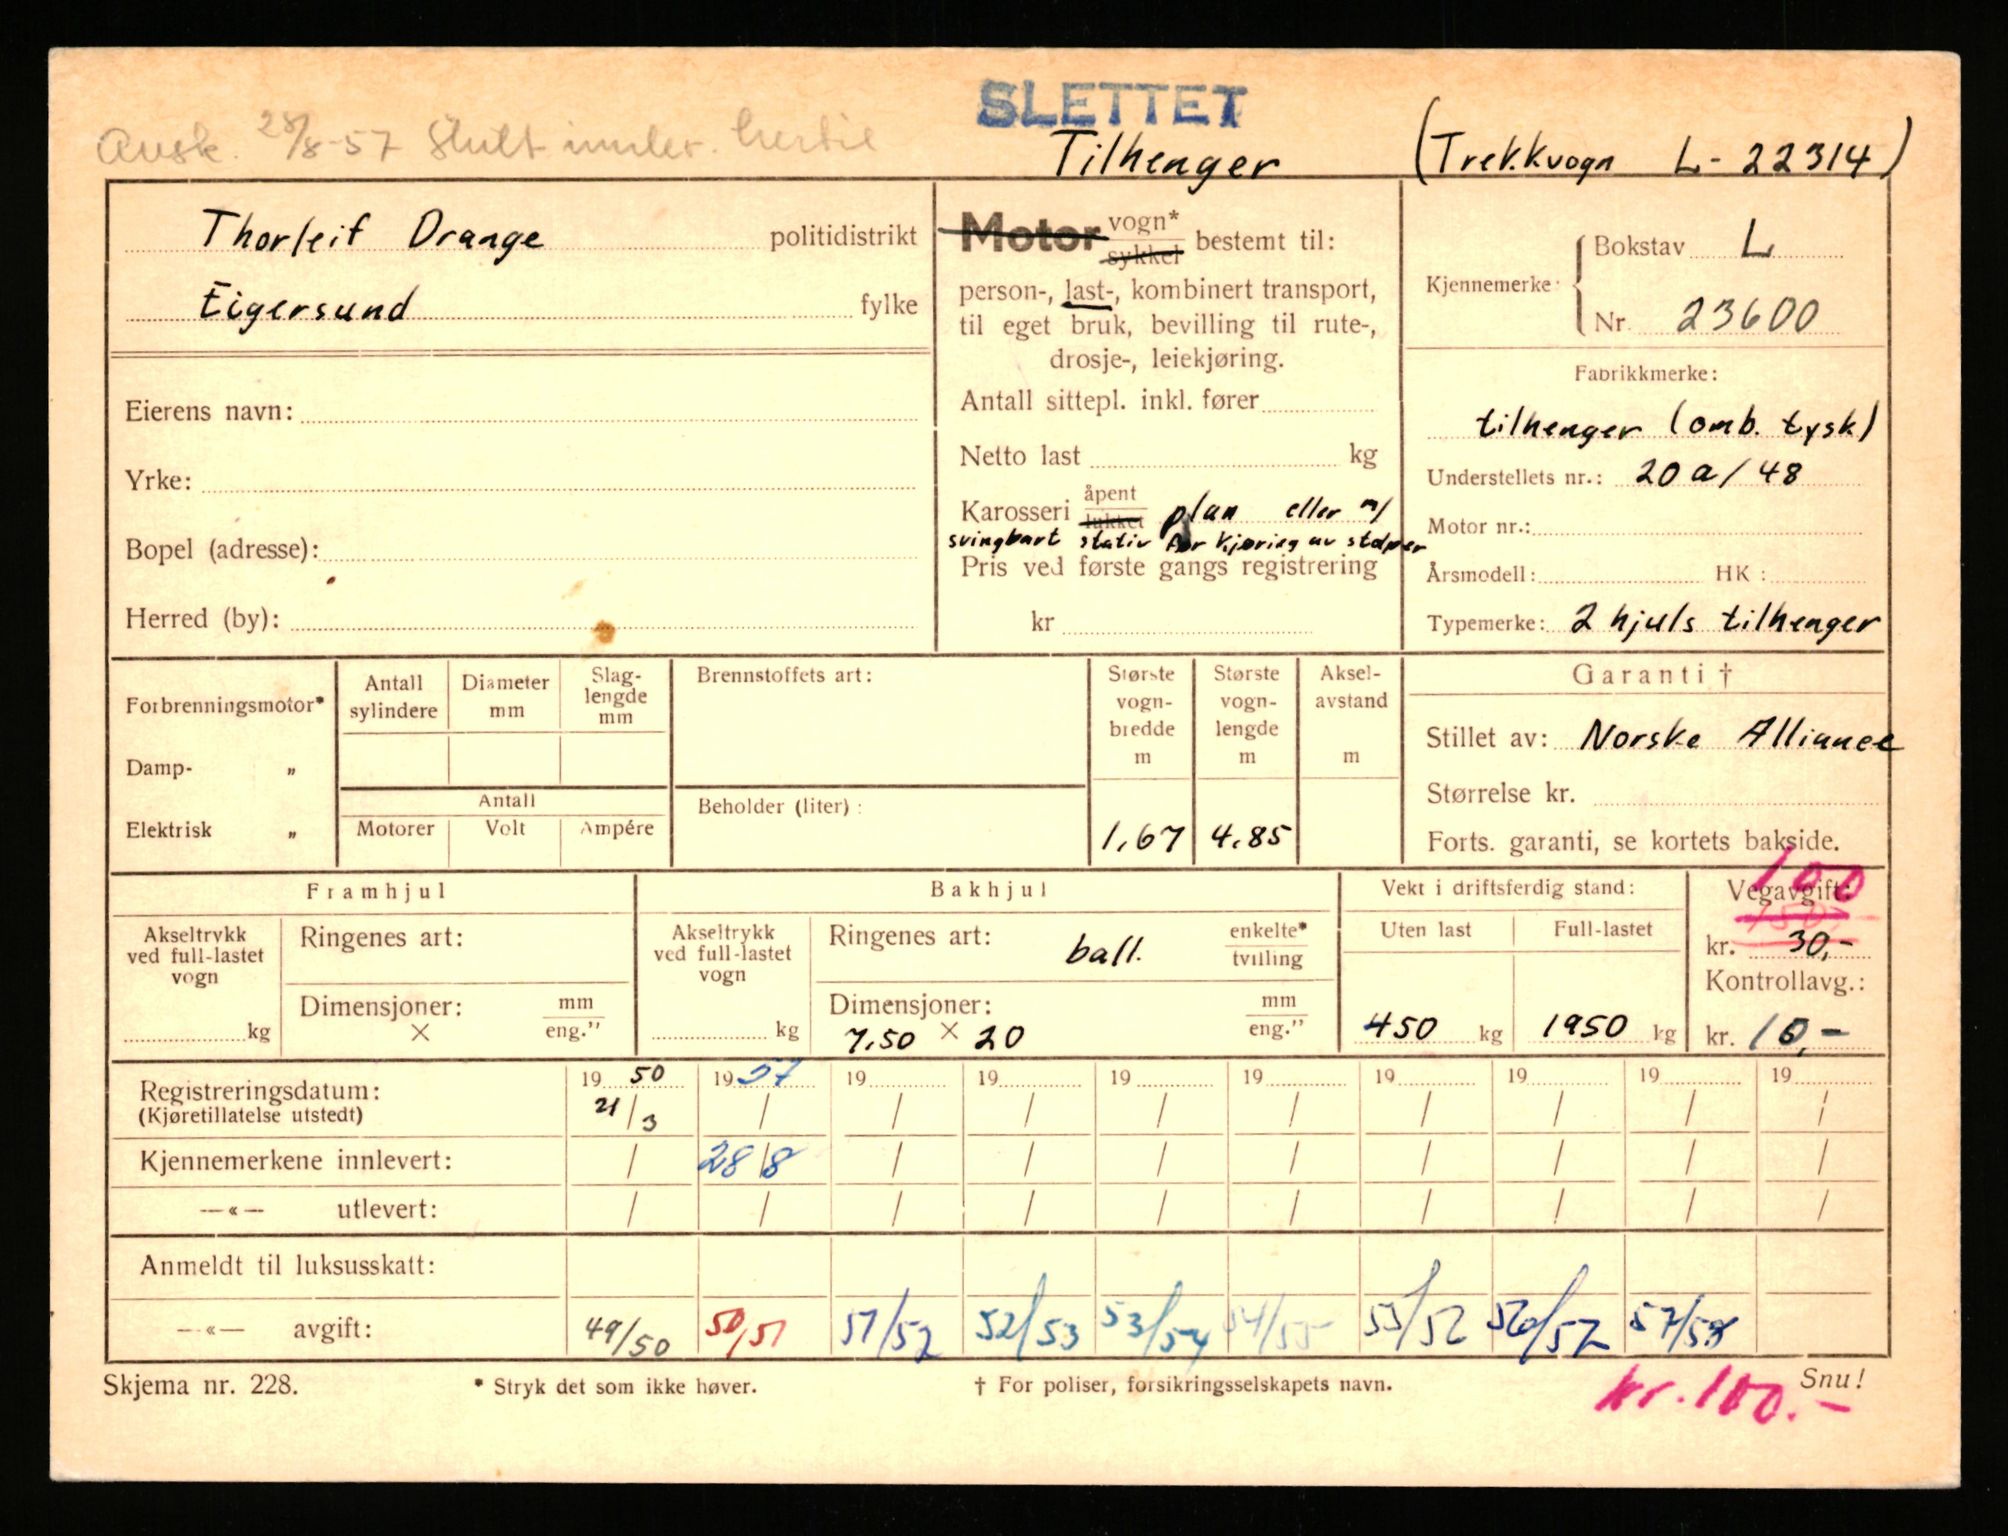 SLETTET
28/8-57
Tilhenger (Trekkvogn L-22314)
Thorleif Orange politidistrikt
Eigersund fylke
Eierens navn:
Yrke:
Bopel (adresse):
Herred (by):
Motor vogn*
sykkel bestemt til:
person-, last-, kombinert transport,
til eget bruk, bevilling til rute-,
drosje-, leiekjøring.
Antall sittepl. inkl. fører
Netto last kg
Karosseri åpent
lukket plan eller m/
svingbart stativ for kjøring av stolper
Pris ved første gangs registrering
kr
Kjennemerke: Bokstav L
Nr. 23600
Fabrikkmerke:
tilhenger (omb. tysk)
Understellets nr.: 20 a/48
Motor nr.:
Årsmodell: HK:
Typemerke: 2 hjuls tilhenger
Forbrenningsmotor*
Damp- "
Elektrisk "
Antall sylindere
Diameter mm
Slag-lengde mm
Antall
Motorer Volt Ampére
Brennstoffets art:
Beholder (liter):
Største vogn-bredde m
1,67
Største vogn-lengde m
4.85
Aksel-avstand m
Garanti †
Stillet av: Norske Alliance
Størrelse kr.
Forts. garanti, se kortets bakside.
Framhjul
Akseltrykk ved full-lastet vogn
kg
Ringenes art:
Dimensjoner: mm
× eng."
Bakhjul
Akseltrykk ved full-lastet vogn
kg
Ringenes art: ball. enkelte*
tvilling
Dimensjoner: mm
7.50 × 20 eng."
Vekt i driftsferdig stand:
Uten last Full-lastet
450 kg 1950 kg
100
Vegavgift:
150,-
kr. 30,-
Kontrollavg.:
kr. 10,-
Registreringsdatum: 19 50 19 57 19 19 19 19 19 19 19 19
(Kjøretillatelse utstedt) 21/3 / / / / / / / / /
Kjennemerkene innlevert: / 28/8 / / / / / / / /
—«— utlevert: / / / / / / / / / /
Anmeldt til luksusskatt:
—«— avgift: 49/50 50/51 51/52 52/53 53/54 54/55 55/56 56/57 57/58
Skjema nr. 228. * Stryk det som ikke høver. † For poliser, forsikringsselskapets navn. Snu!
kr. 100.-